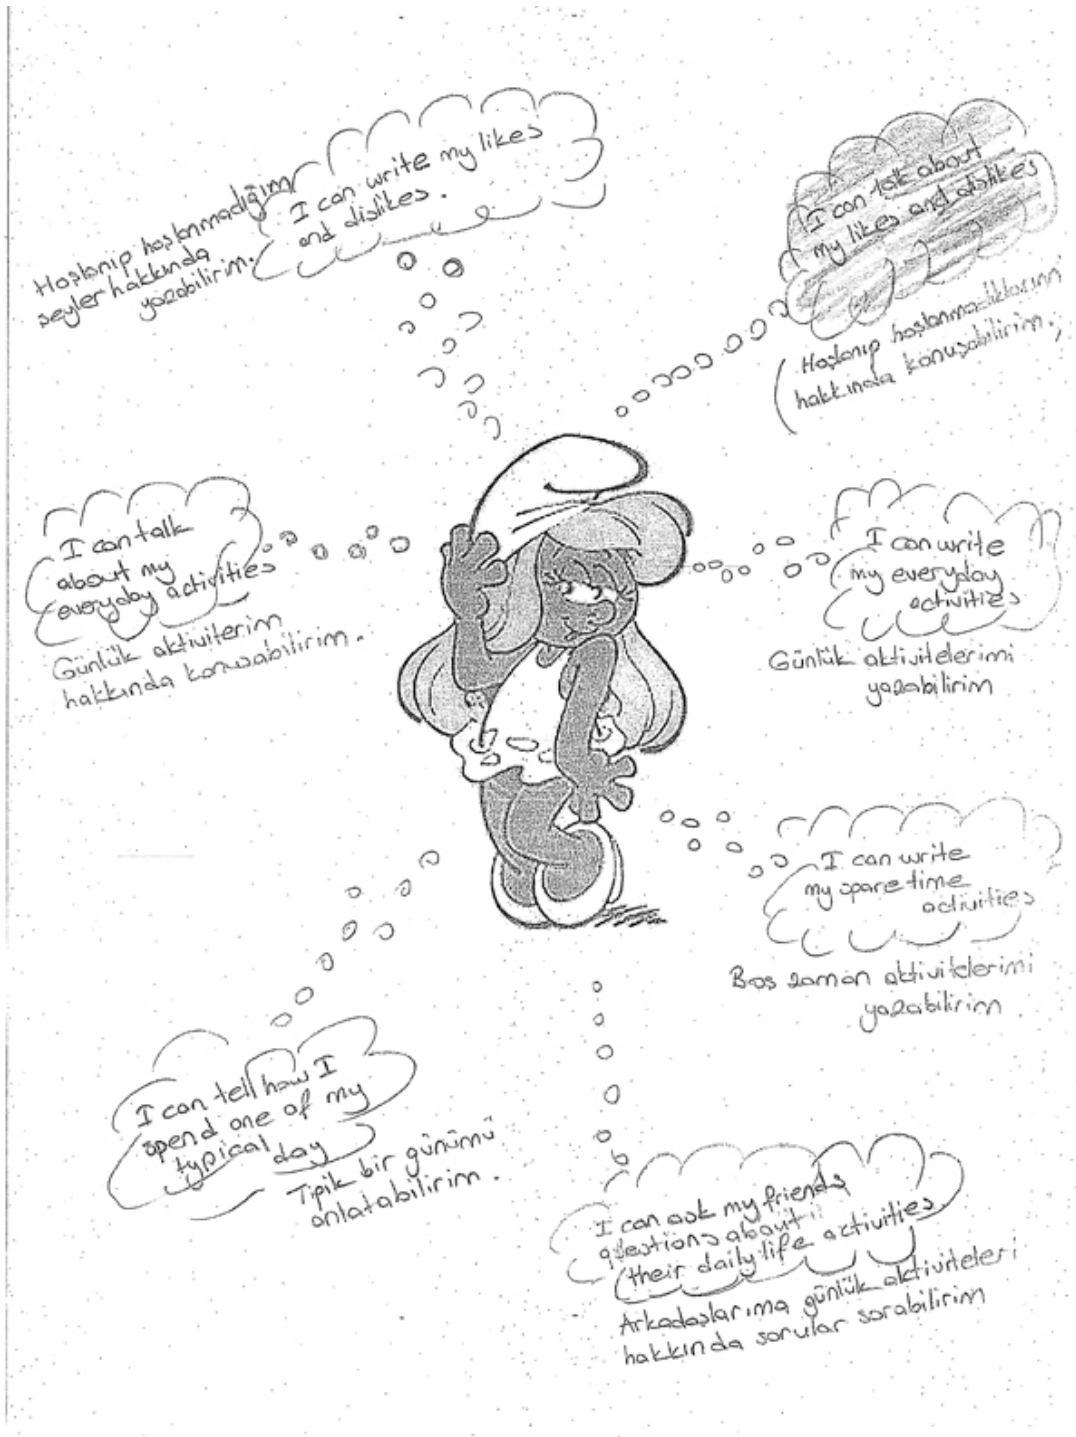 I can write my likes
and dislikes.
Hoşlanıp hoşlanmadığım
şeyler hakkında
yazabilirim.
I can talk about
my likes and dislikes
(Hoşlanıp hoşlanmadıklarımın
hakkında konuşabilirim.)
I can talk
about my
everyday activities
Günlük aktiviterim
hakkında konusabilirim.
I can write
my everyday
activities
Günlük aktivitelerimi
yazabilirim
I can write
my spare time
activities
Boş zaman aktivitelerimi
yazabilirim
I can tell how I
spend one of my
typical day
Tipik bir günümü
anlatabilirim.
I can ask my friends
questions about
their daily life activities
Arkadaşlarıma günlük aktiviteleri
hakkında sorular sorabilirim